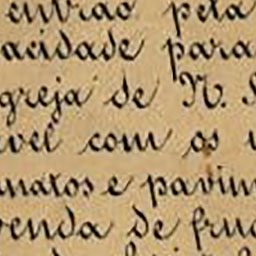 entrão pela
acidade para
greja de N. S
vel com os
matos e pavim
venda de fru